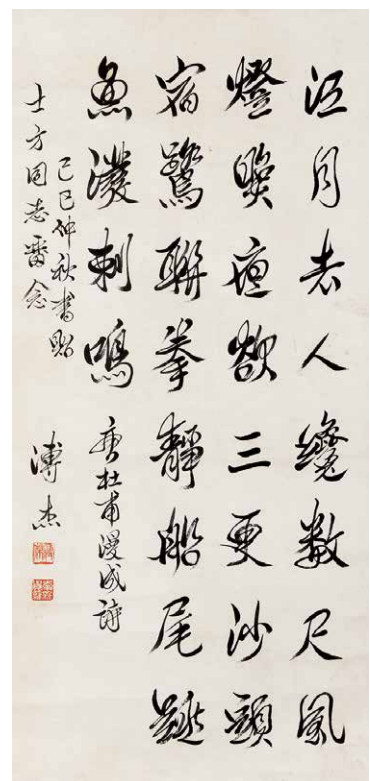 江月去人纔數尺風
燈照夜欲三更沙頭
宿鷺聯拳靜船尾跳
魚潑剌鳴
唐杜甫漫成詩
己巳仲秋書贈
士方同志畱念
溥杰